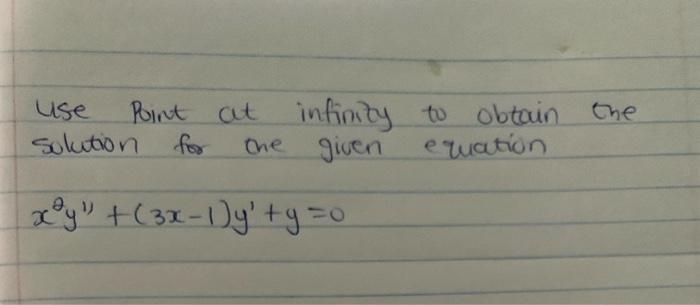 Use Point at infinity to obtain the
solution for the given equation
x²y'' + (3x-1)y' + y = 0